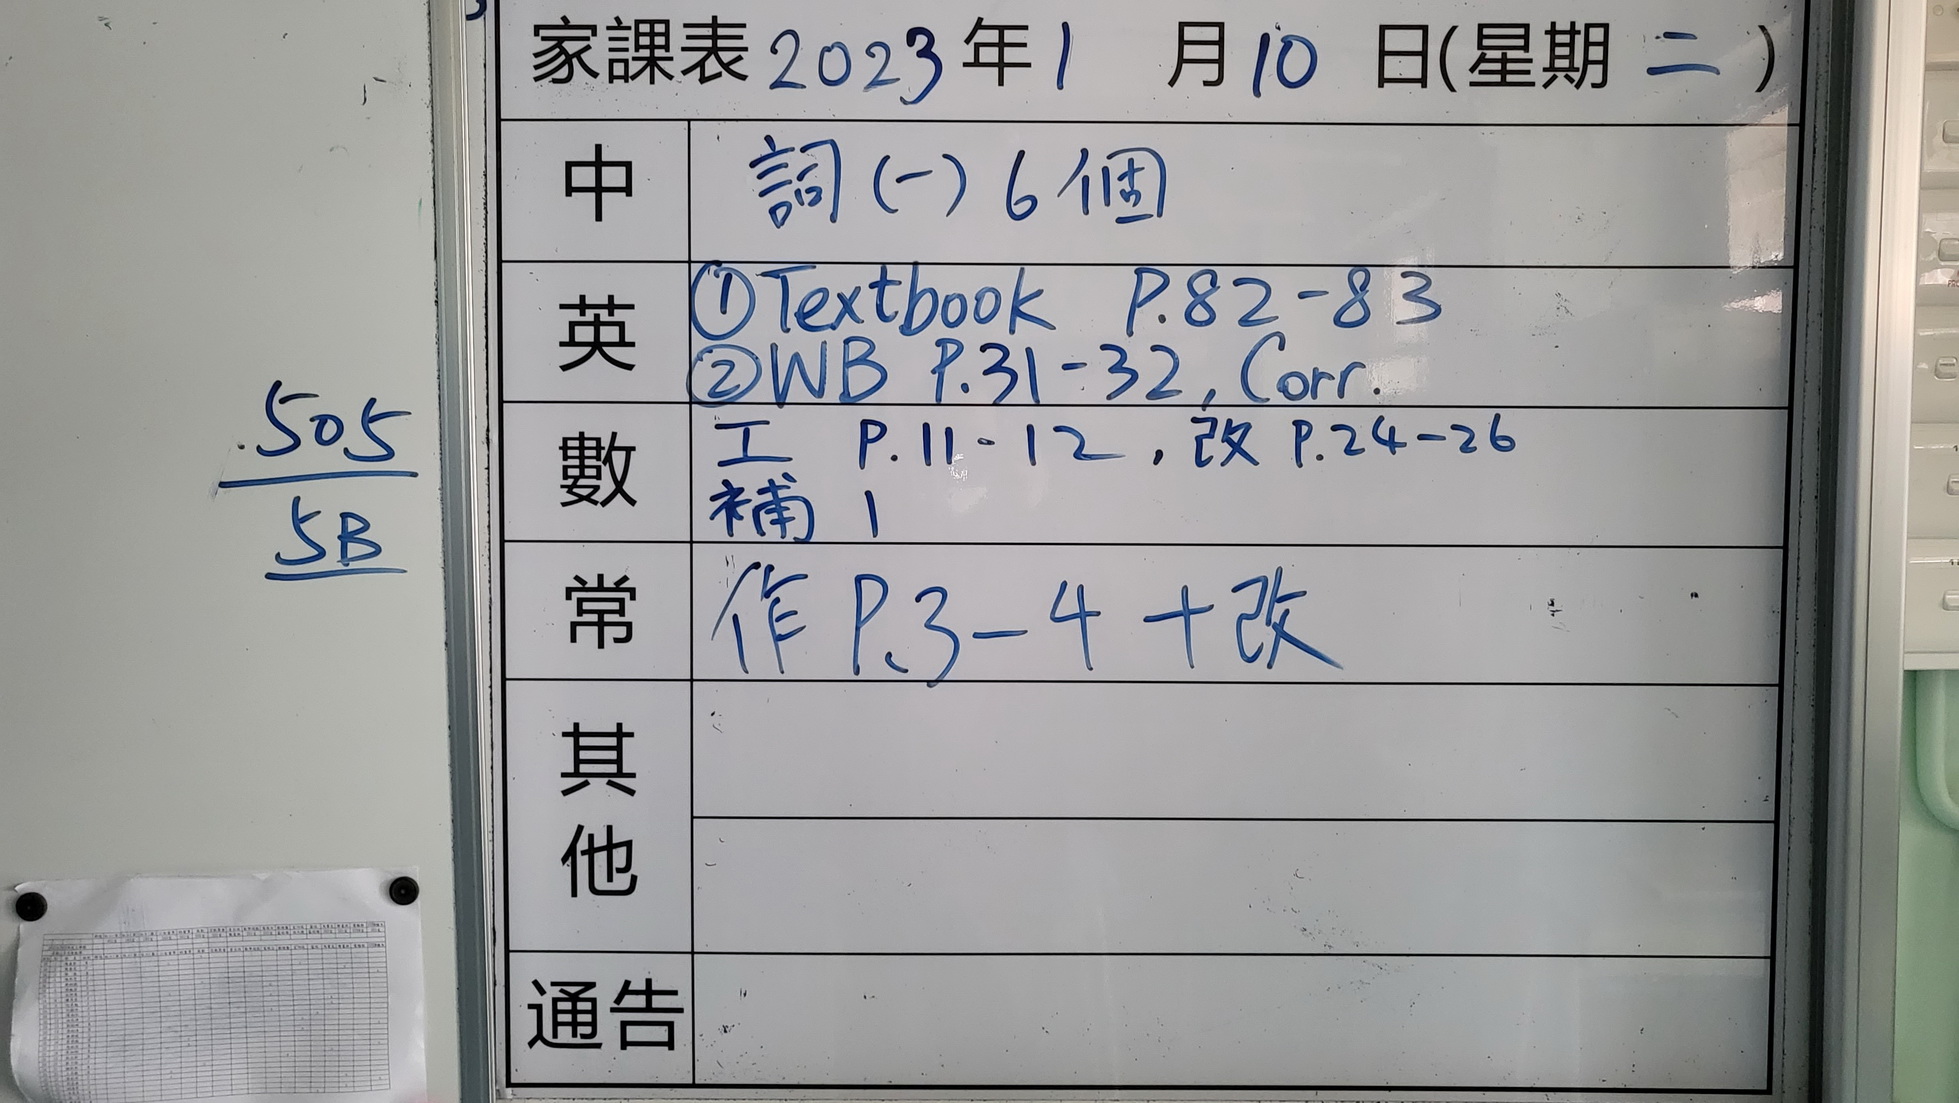 家課表 2023年1月10日(星期二)
中 詞(一)6個
英 ①Textbook P.82-83
②WB P.31-32, Corr.
數 工 P.11-12,改 P.24-26
補 1
常 作 P.3-4 +改
其他
通告
505
5B